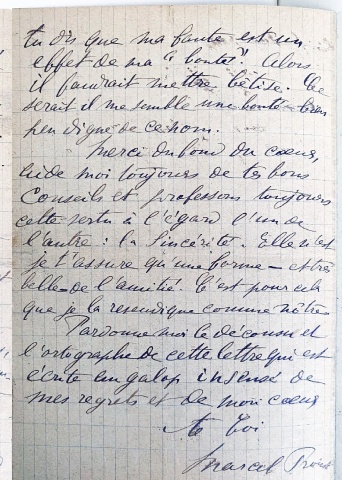 tu dis que ma faute est un
effet de ma "bonté". Alors
il faudrait mettre bêtise. Ce
serait il me semble une bonté bien
peu digne de ce nom.
Merci du fond du cœur,
aide moi toujours de tes bons
conseils et professons toujours
cette vertu à l'égard l'un de
l'autre : la Sincérité. Elle n'est
je t'assure qu'une forme - et très
belle - de l'amitié. C'est pour cela
que je la revendique comme nôtre
Pardonne moi le décousu et
l'ortographe de cette lettre qui est
écrite au galop insensé de
mes regrets et de mon cœur
à toi
Marcel Proust